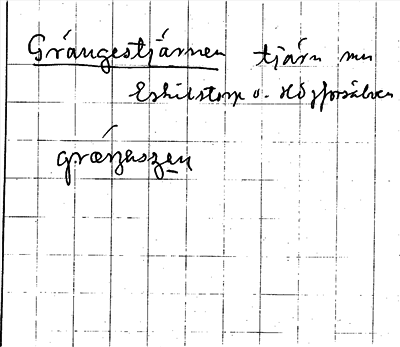 Grängestjärnen tjärn mn
Eskilstorp o. Högforsälven
grœŋeszen